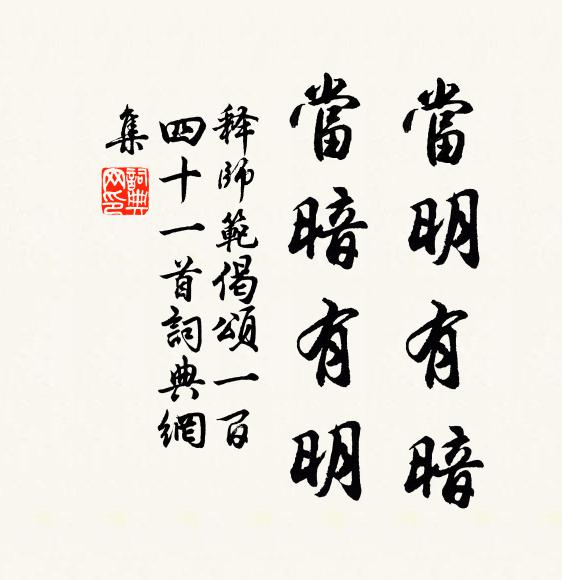 當明有暗
當暗有明
释師範偈頌一百
四十一首詞典網
集
詞典網印